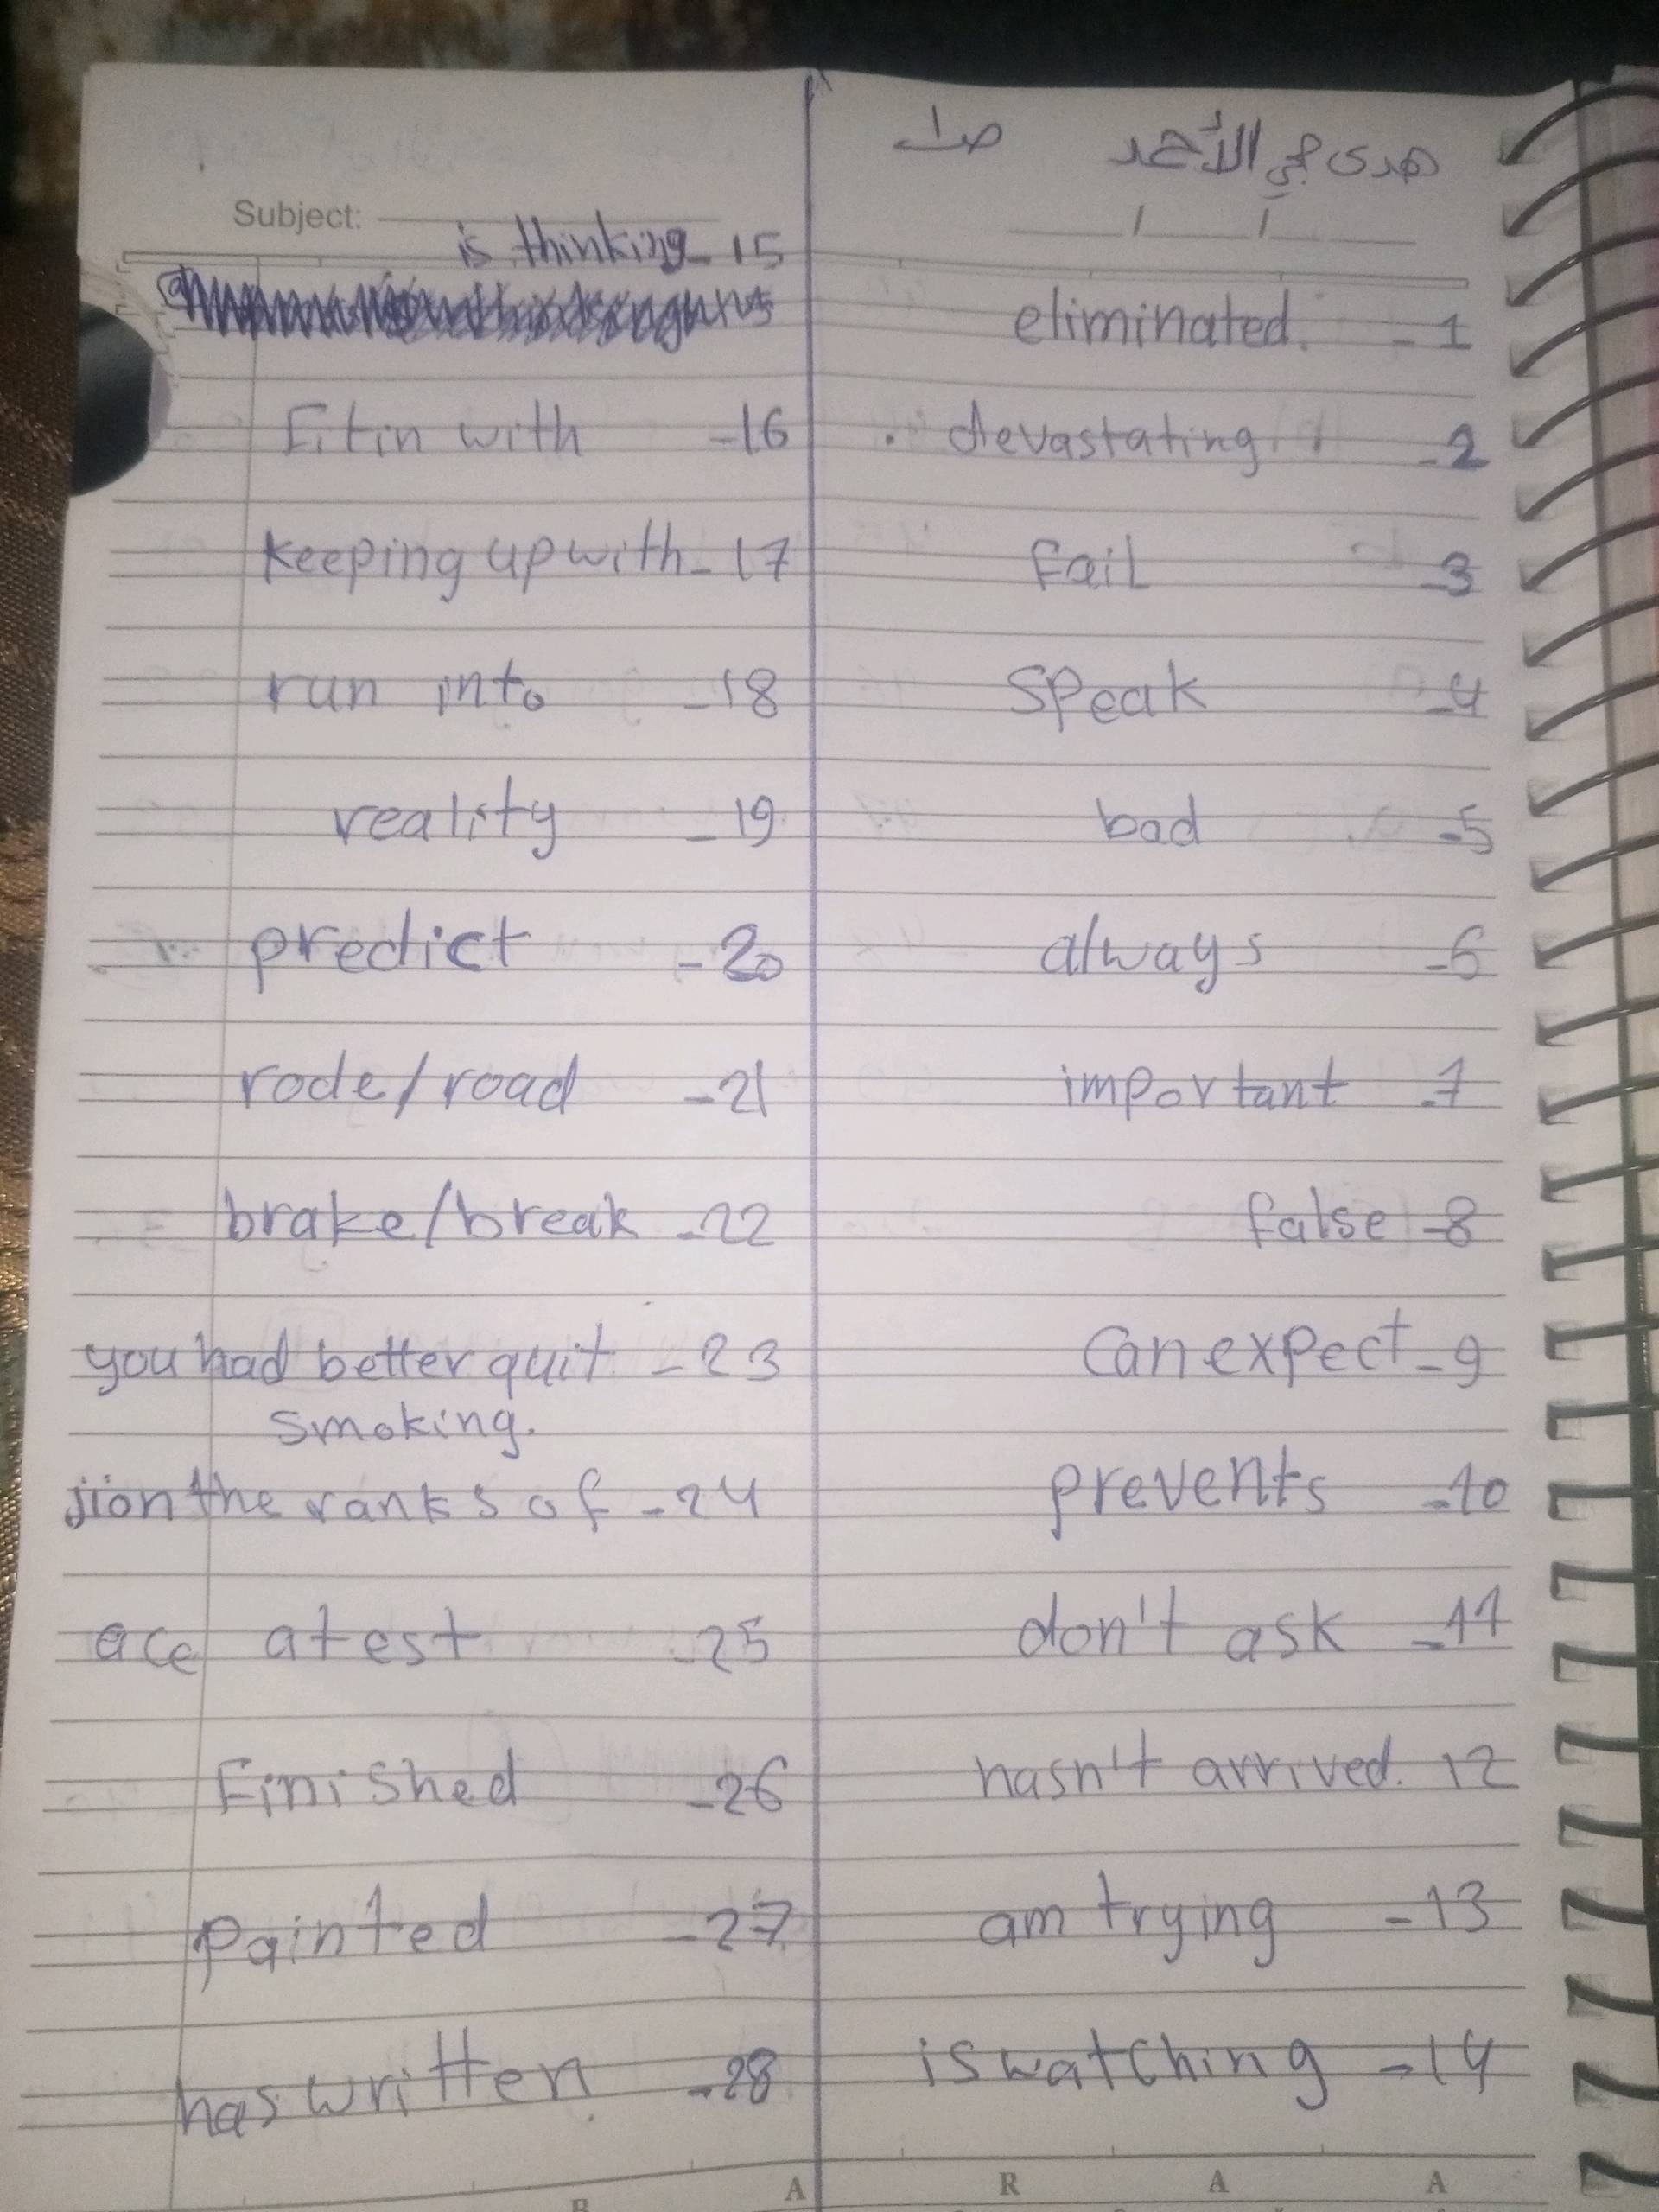 هدى جي الأحمد
ص1
eliminated. - 1
devastating - 2
fail - 3
Speak - 4
bad - 5
always - 6
important - 7
false - 8
Can expect - 9
prevents - 10
don't ask - 11
hasn't arrived. 12
am trying - 13
is watching - 14
Subject:
is thinking - 15
Fit in with - 16
keeping up with - 17
run into - 18
reality - 19
predict - 20
rode/road - 21
brake/break - 22
you had better quit - 23
smoking.
jion the ranks of - 24
ace a test - 25
Finished - 26
Painted - 27
has written. - 28
B A R A A